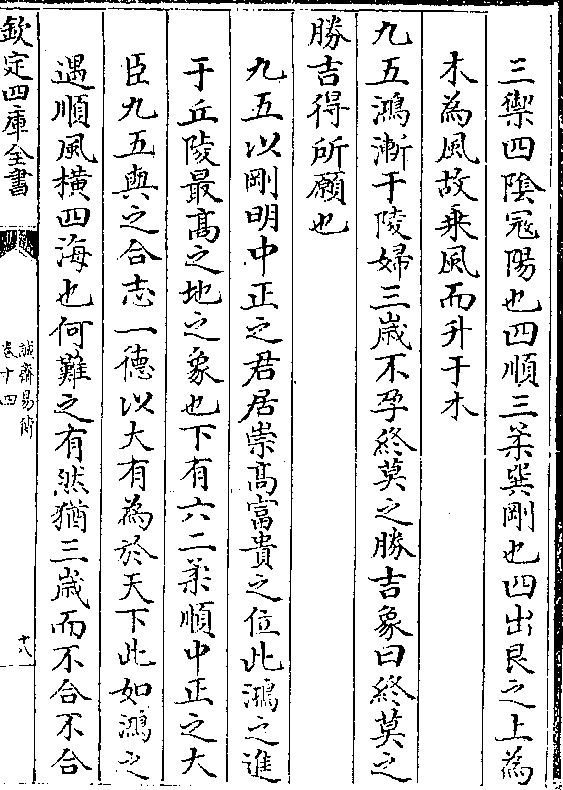 三禦四陰冦陽也四順三柔巽剛也四出艮之上為
木為風故乗風而升于木
九五鴻漸于陵婦三歳不孕終莫之勝吉象曰終莫之
勝吉得所願也
九五以剛明中正之君居崇髙富貴之位此鴻之進
于丘陵最髙之地之象也下有六二柔順中正之大
臣九五與之合志一德以大有為於天下此如鴻之
遇順風橫四海也何難之有然猶三歳而不合不合
欽定四庫全書
誠齋易傳
卷十四
十八